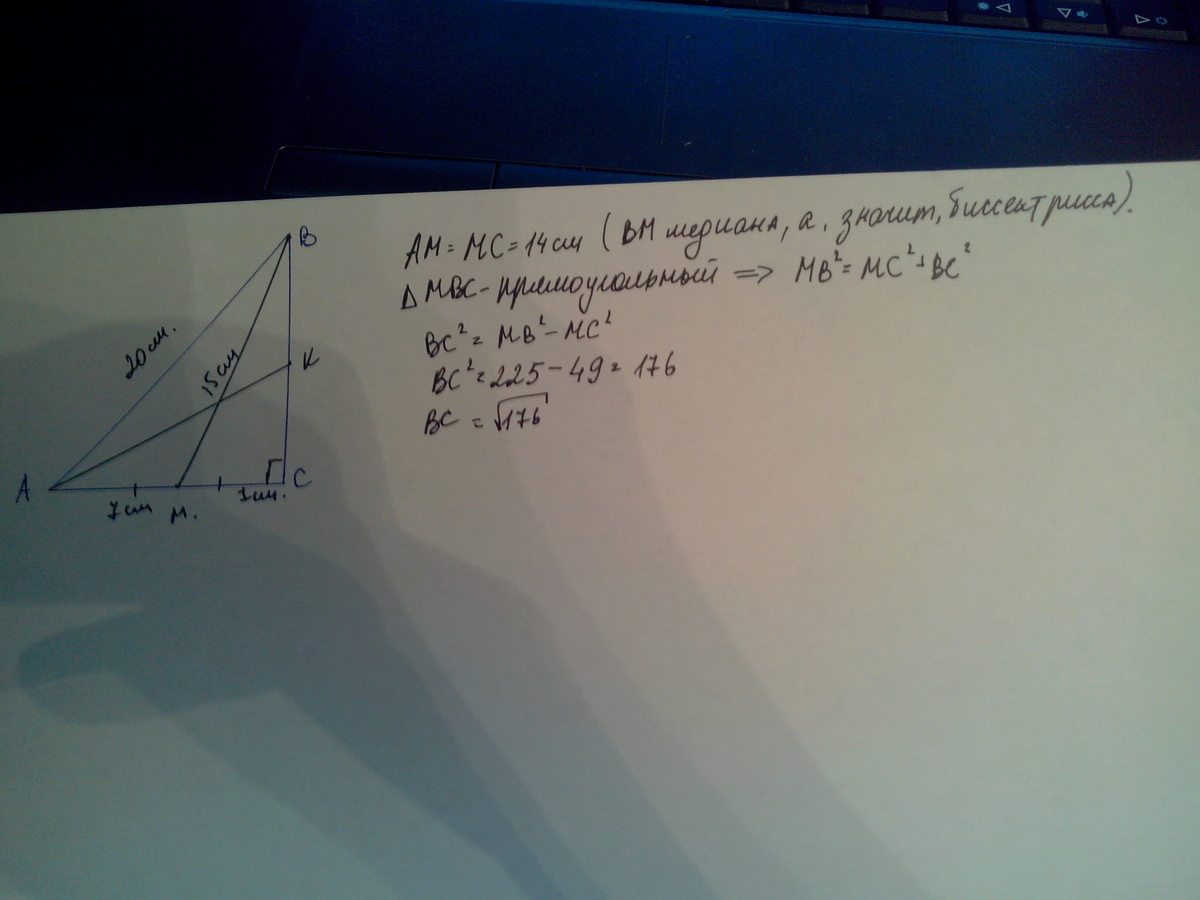 B
20 см.
15 см
K
A
C
7 см
M.
7 см.
AM = MC = 14 см (BM медиана, а, значит, биссектрисса).
Δ MBC - прямоугольный => MB² = MC² + BC²
BC² = MB² - MC²
BC² = 225 - 49 = 176
BC = √176